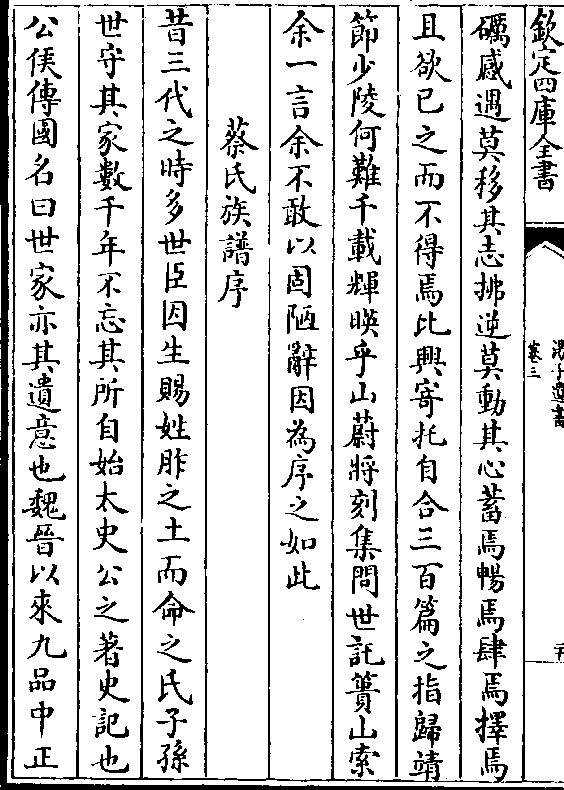 欽定四庫全書
卷三
礪感遇莫移其志拂逆莫動其心蓄焉暢焉肆焉擇焉
且欲已之而不得焉比興寄托自合三百篇之指歸靖
節少陵何難千載輝暎乎山蔚將刻集問世託蕢山索
余一言余不敢以固陋辭因為序之如此
蔡氏族譜序
昔三代之時多世臣因生賜姓胙之土而命之氏子孫
世守其家數千年不忘其所自始太史公之著史記也
公侯傳國名曰世家亦其遺意也魏晉以來九品中正